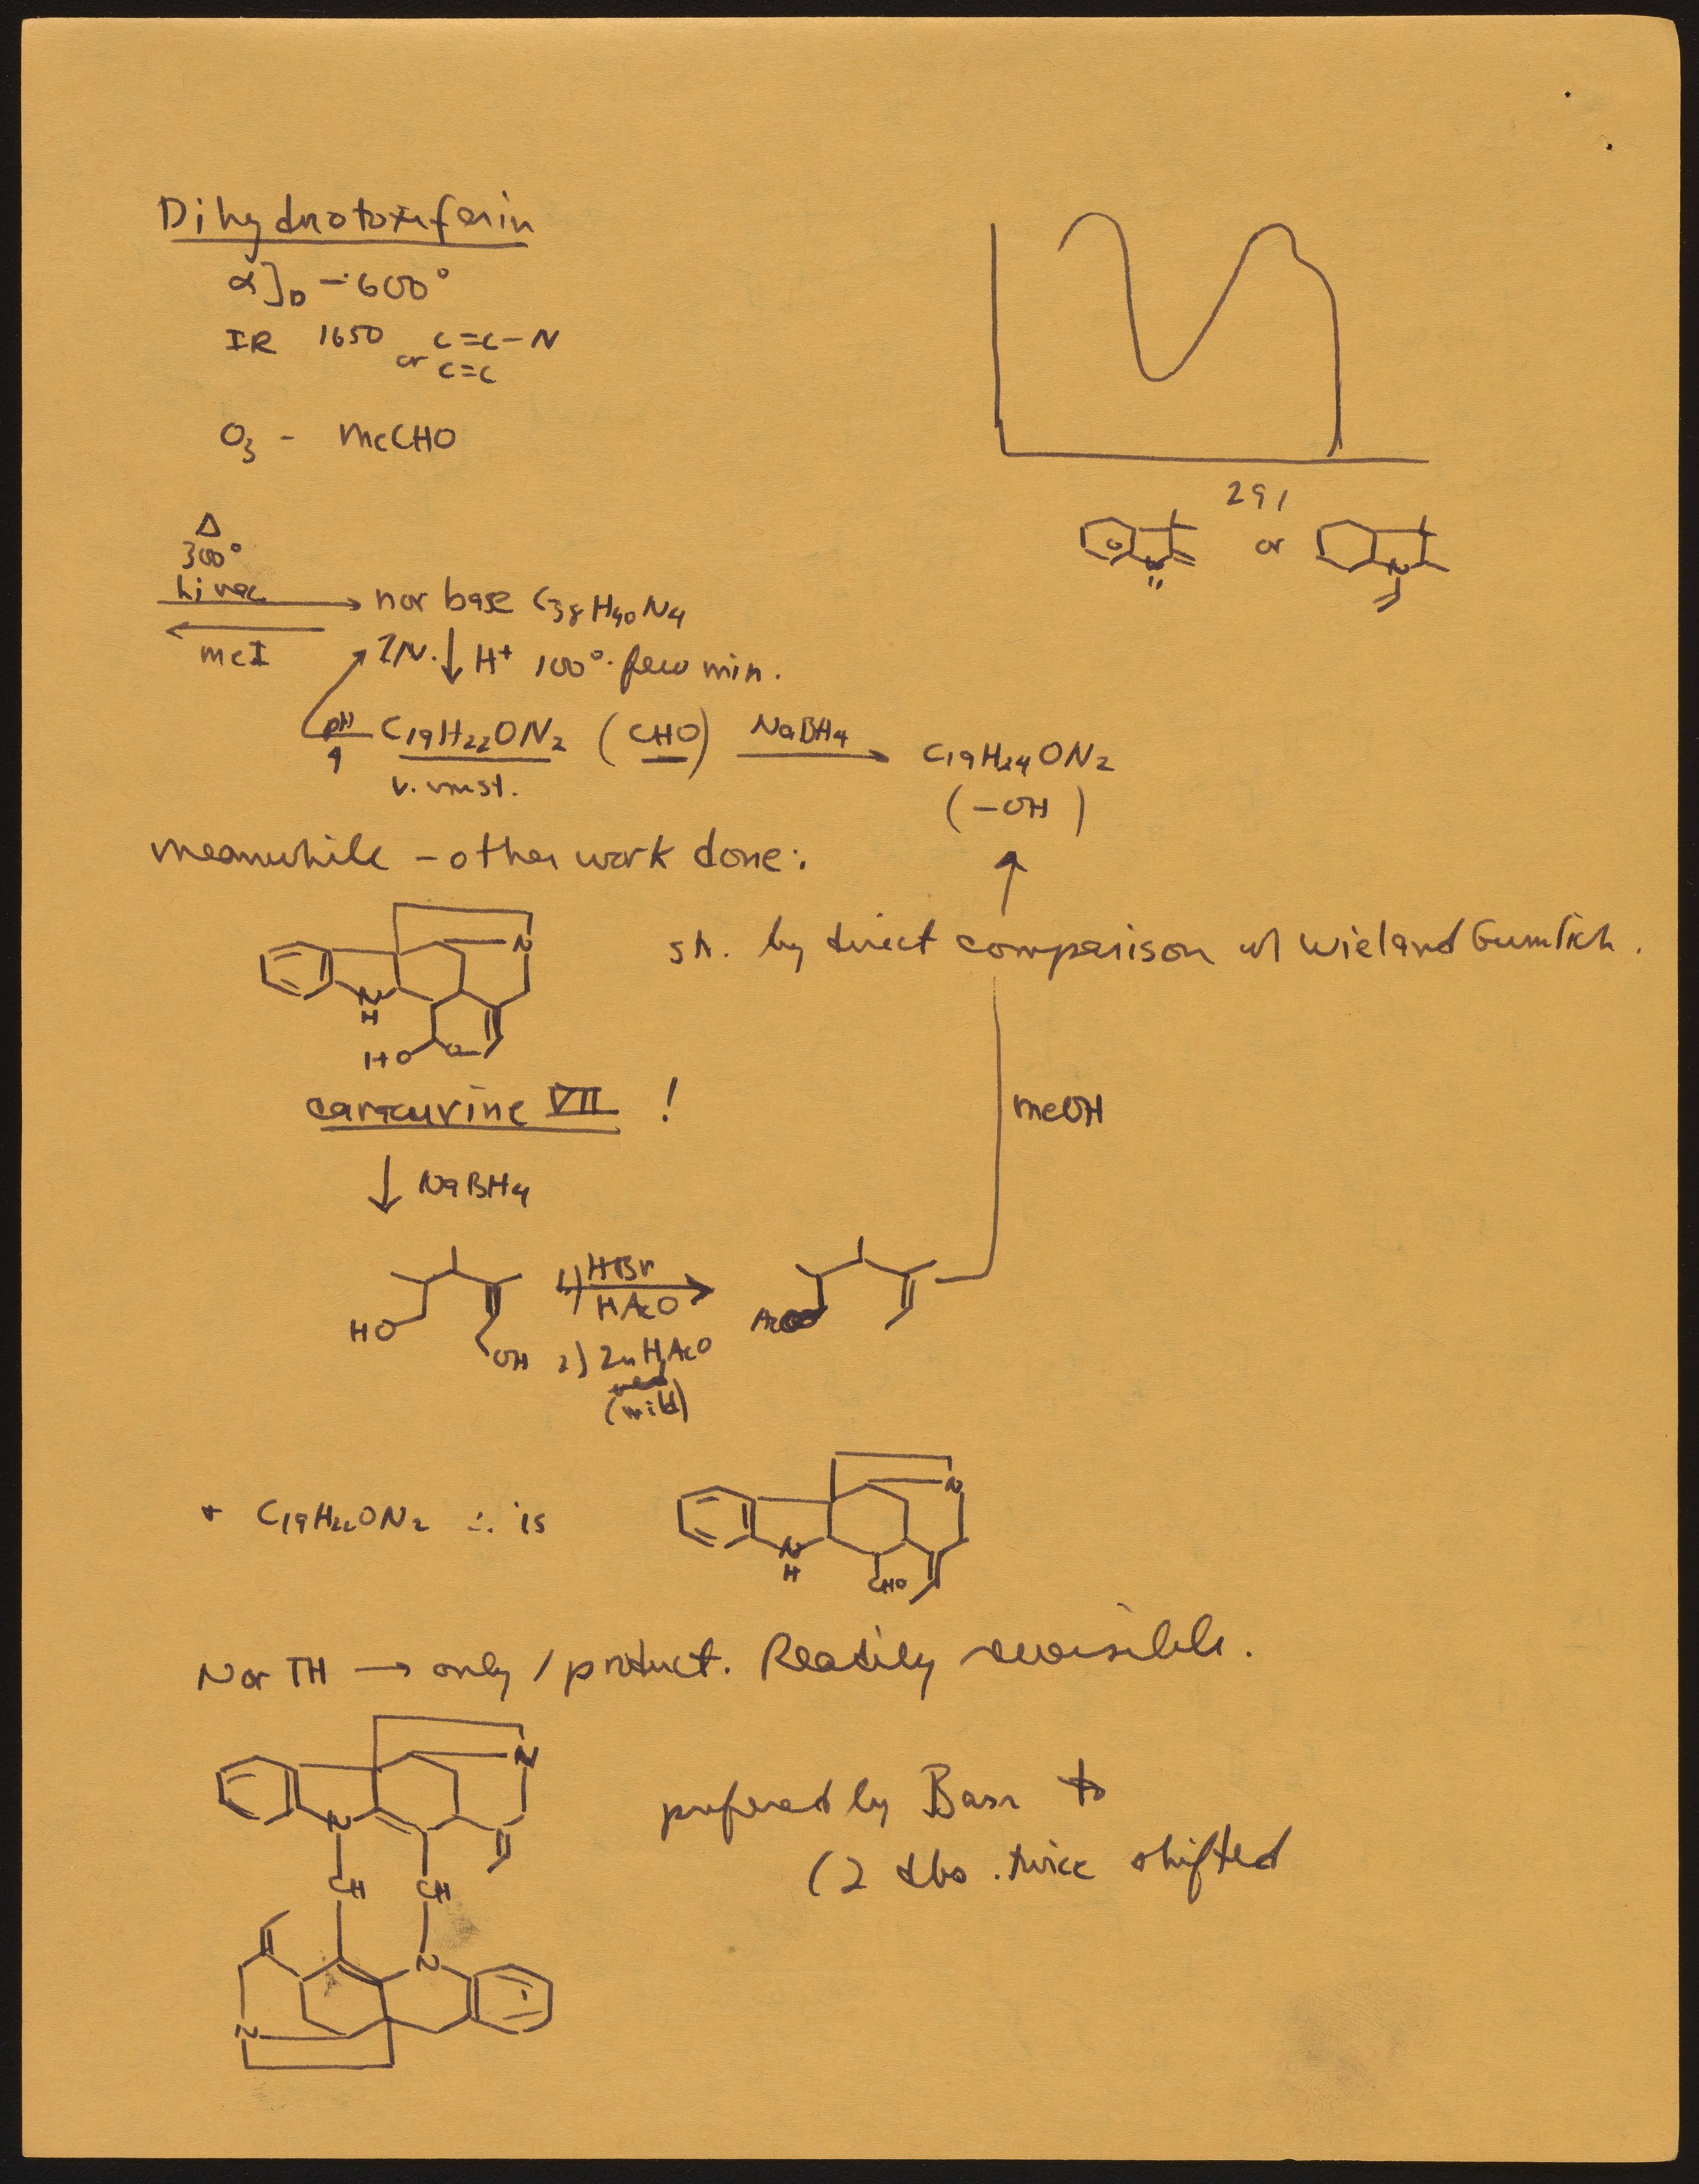 Dihydrotoxiferin
α]D −600°
IR 1650 C=C−N
or C=C
O3 - MeCHO
291
or
N
N
Δ
300°
hi vac → nor base C38H40N4
← MeI
IN. ↓ H+ 100° few min.
pH 9 C19H22ON2 (CHO) NaBH4 → C19H24ON2
v. unst. (−OH)
meanwhile − other work done:
N
N
H
HO O
sh. by direct comparison w/ Wieland Gumlich.
caracurine VII !
MeOH
↓ NaBH4
HO
OH
1) HBr
HAcO
2) Zn HAcO
(mild)
AcO
+ C19H22ON2 ∴ is
N
N
H
CHO
Nor TH → only 1 product. Readily reversible.
N
N
CH CH
N
N
prefered by Basr to
(2 dbs. twice shifted